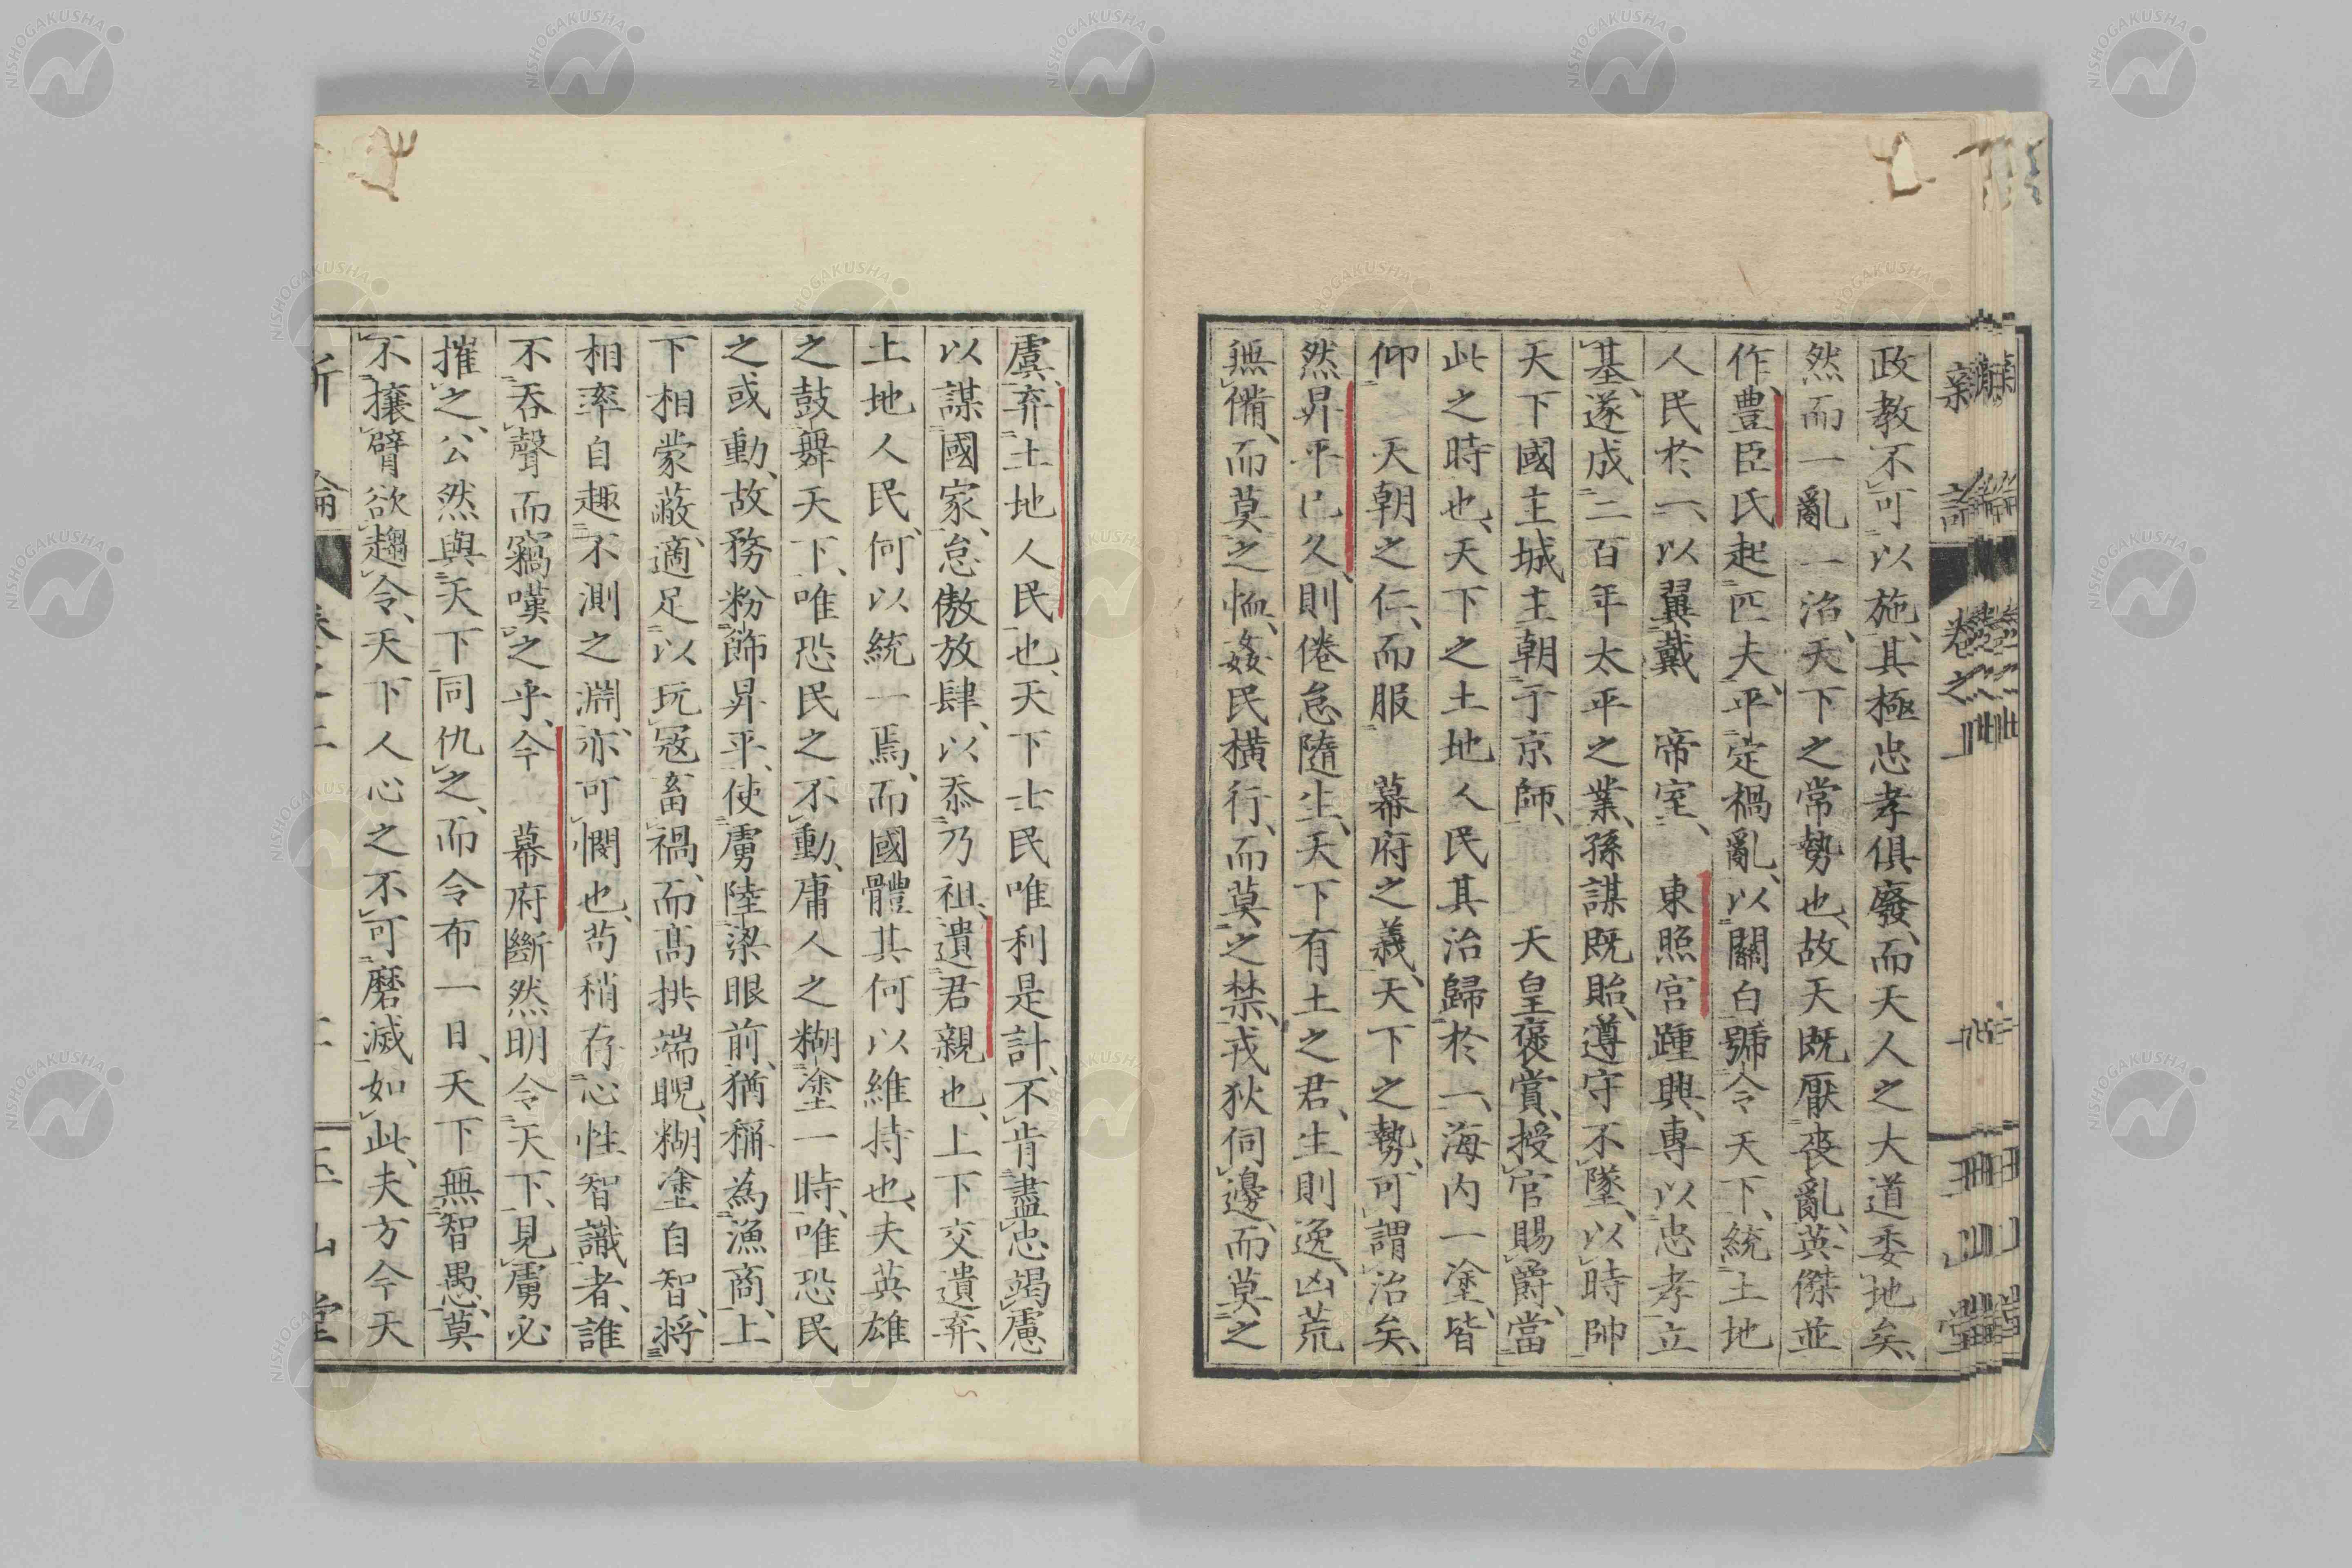 新論 卷之上 玉山堂
政教不可以施、其極忠孝俱廢、而天人之大道委地矣、
然而一亂一治、天下之常勢也、故天既厭喪亂、英傑並
作、豊臣氏起匹夫、平定禍亂、以關白號令天下、統土地
人民於一、以翼戴 帝室、 東照宮踵興、專以忠孝立
基、遂成二百年太平之業、孫謀既貽、遵守不墜、以時帥
天下國主城主朝于京師、 天皇褒賞、授官賜爵、當
此之時也、天下之土地人民其治歸於一、海內一塗、皆
仰 天朝之仁、而服 幕府之義、天下之勢、可謂治矣、
然昇平已久、則倦怠隨生、天下有土之君、生則逸、凶荒
無備、而莫之恤、姦民橫行、而莫之禁、戎狄伺邊、而莫之
虞、弃土地人民也、天下士民唯利是計、不肯盡忠竭慮
以謀國家、怠傲放肆、以忝乃祖、遺君親也、上下交遺弃、
土地人民、何以統一焉、而國體其何以維持也、夫英雄
之鼓舞天下、唯恐民之不動、庸人之糊塗一時、唯恐民
之或動、故務粉飾昇平、使虜陸梁眼前、猶稱為漁商、上
下相蒙蔽、適足以玩冦畜禍、而高拱端睨、糊塗自智、將
相率自趣不測之淵、亦可憫也、苟稍存心性智識者、誰
不吞聲而竊嘆之乎、今 幕府斷然明令天下、見虜必
摧之、公然與天下同仇之、而令布一日、天下無智愚、莫
不攘臂欲趨令、天下人心之不可磨滅如此、夫方今天